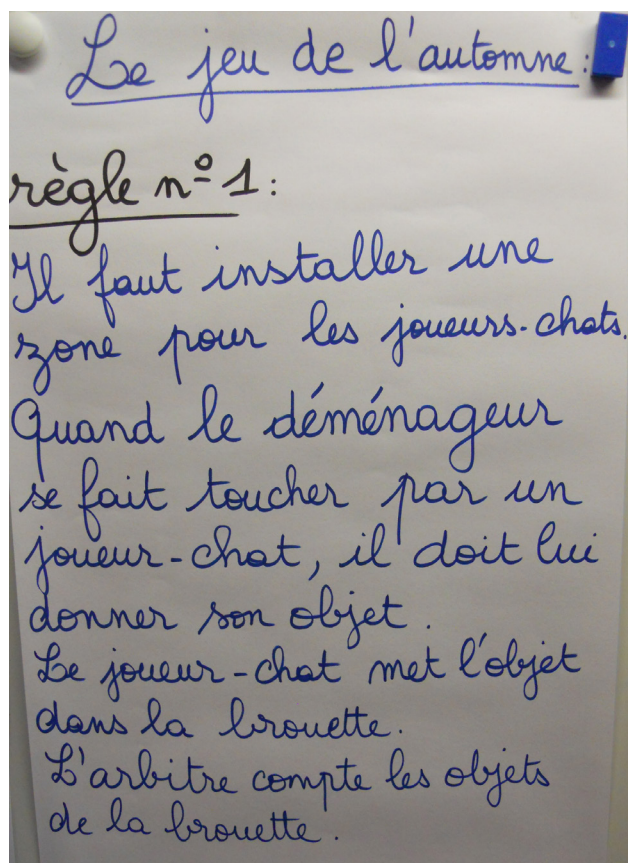 Le jeu de l'automne :
règle n° 1 :
Il faut installer une
zone pour les joueurs-chats.
Quand le déménageur
se fait toucher par un
joueur-chat, il doit lui
donner son objet.
Le joueur-chat met l'objet
dans la brouette.
L'arbitre compte les objets
de la brouette.